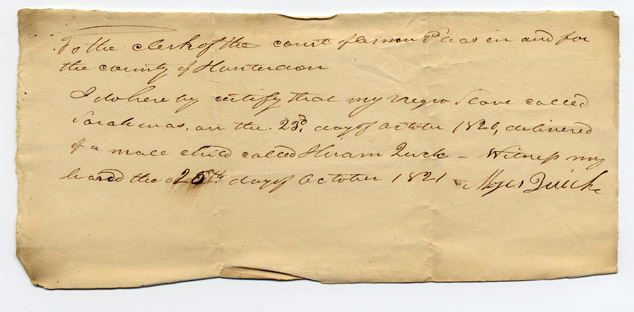 To the clerk of the court of common Pleas in and for
the county of Hunterdon
I do here by certify that my negro Slave called
Sarah was, on the 23d. day of October 1821, delivered
of a male child called Hiram Quick – Witness my
hand the 25th day of October 1821 Moses Quick